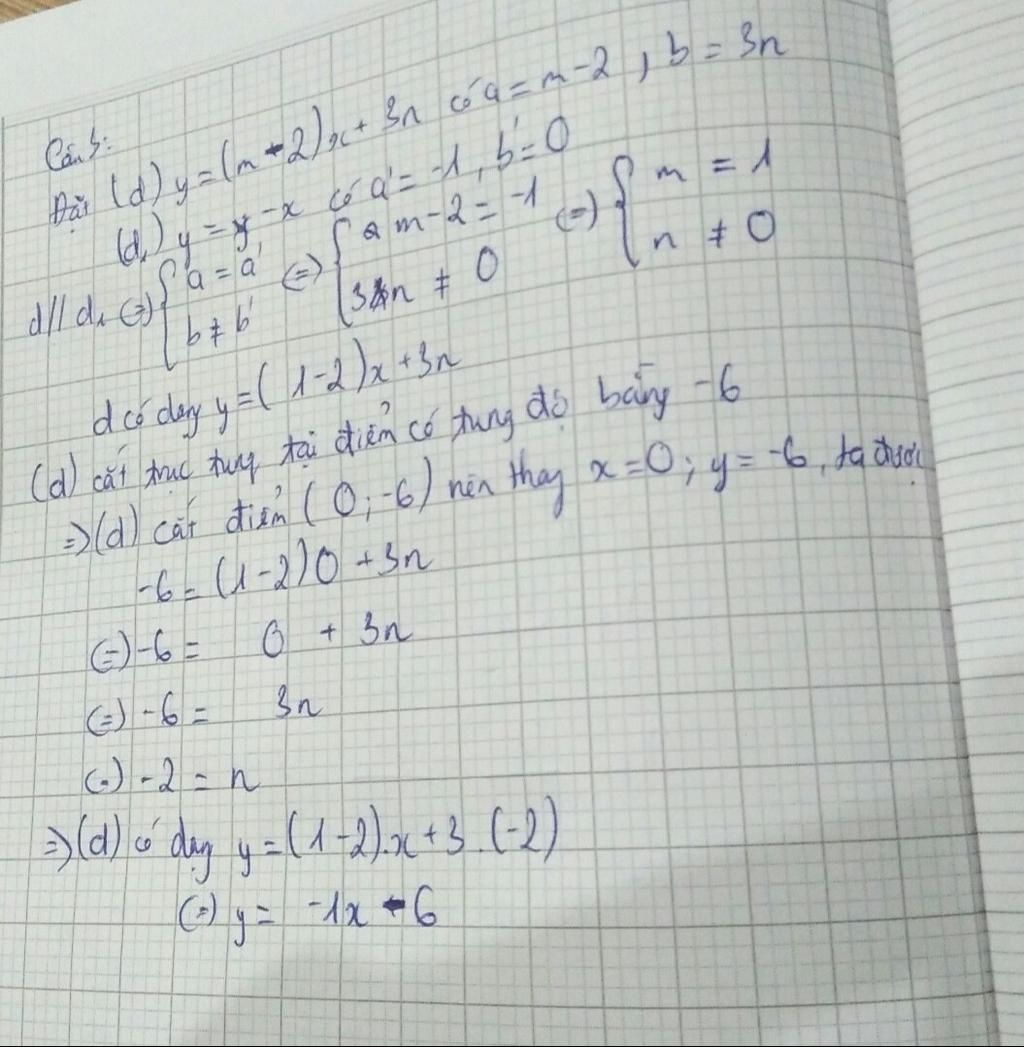 Câu 3:
Đặt (d) y = (m-2)x + 3n có a = m-2, b = 3n
(d₁) y = -x có a' = -1, b' = 0
d // d₁ (=) { a = a' ; b ≠ b' (=) { m-2 = -1 ; 3n ≠ 0 (=) { m = 1 ; n ≠ 0
d có dạng y = (1-2)x + 3n
(d) cắt trục tung tại điểm có tung độ bằng -6
=> (d) cắt điểm (0; -6) nên thay x = 0; y = -6, ta được
-6 = (1-2)0 + 3n
(=) -6 = 0 + 3n
(=) -6 = 3n
(=) -2 = n
=> (d) có dạng y = (1-2).x + 3.(-2)
(=) y = -1x - 6